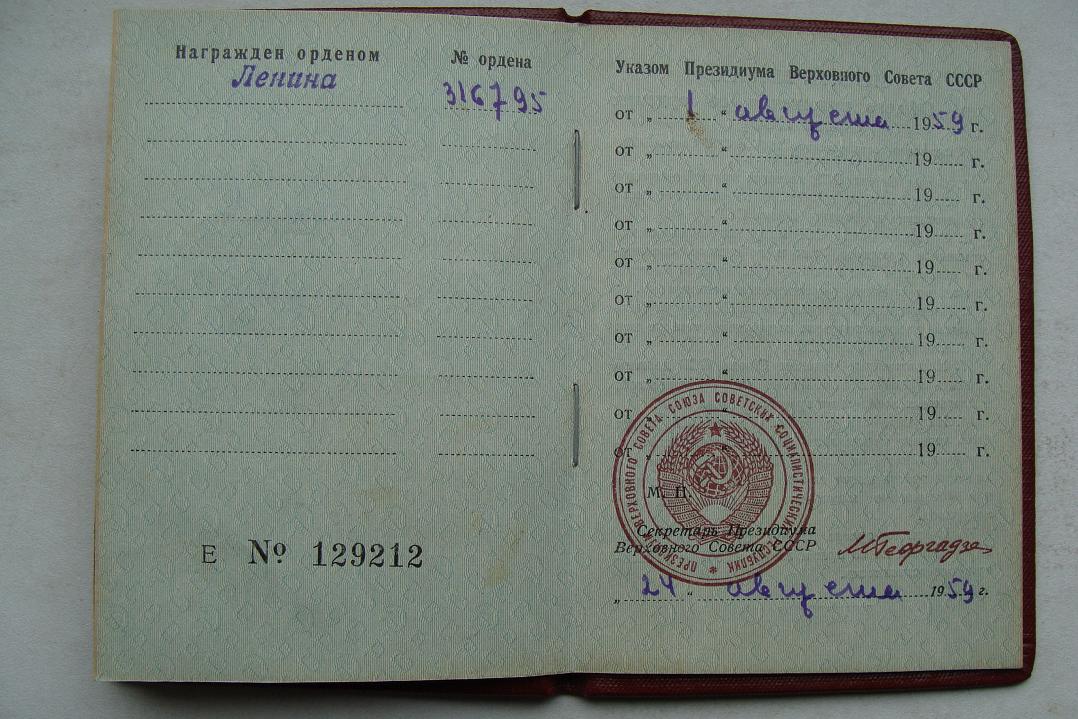 Награжден орденом
Ленина
№ ордена
316795
Е № 129212
Указом Президиума Верховного Совета СССР
от „ 1 “ августа 1959 г.
от „ “ 19 г.
от „ “ 19 г.
от „ “ 19 г.
от „ “ 19 г.
от „ “ 19 г.
от „ “ 19 г.
от „ “ 19 г.
от „ “ 19 г.
от „ “ 19 г.
ПРЕЗИДИУМ ВЕРХОВНОГО СОВЕТА СОЮЗА СОВЕТСКИХ СОЦИАЛИСТИЧЕСКИХ РЕСПУБЛИК
М. П.
Секретарь Президиума
Верховного Совета СССР
МГеоргадзе
„ 24 “ августа 1959 г.